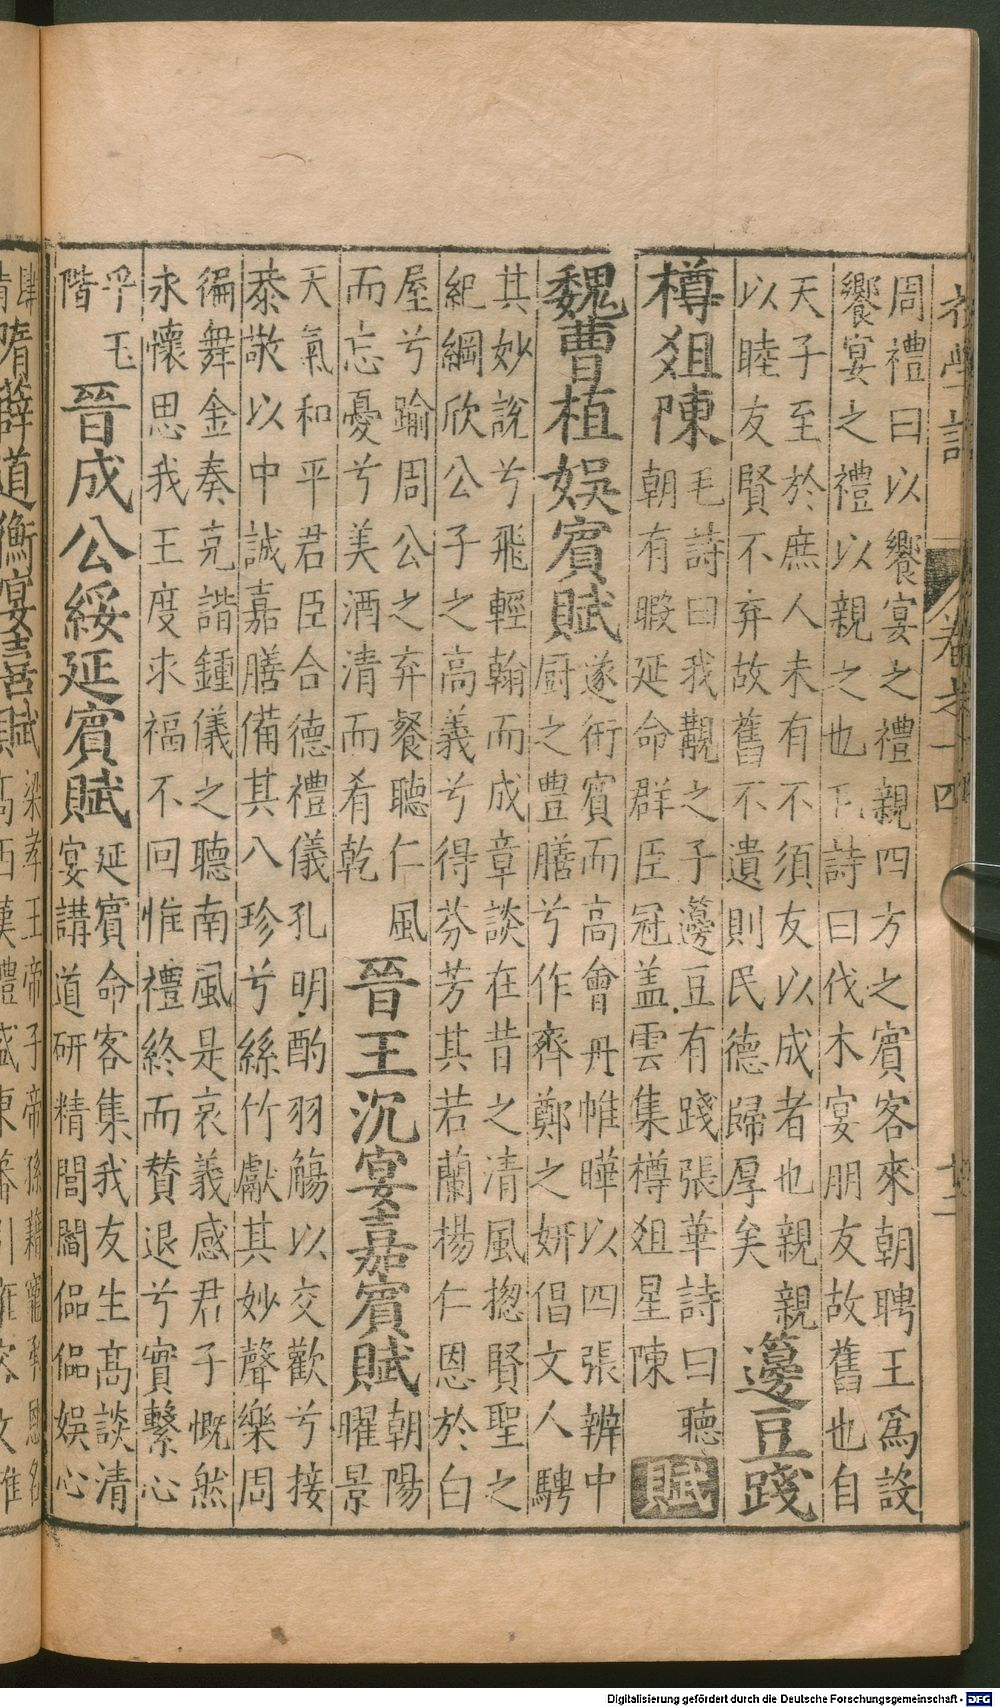 初學記 卷之十四 廿二
周禮曰以饗宴之禮親四方之賓客來朝聘王爲設
饗宴之禮以親之也毛詩曰伐木宴朋友故舊也自
天子至於庶人未有不須友以成者也親親
以睦友賢不弃故舊不遺則民德歸厚矣
籩豆踐
樽爼陳
毛詩曰我覯之子籩豆有踐張華詩曰聽
朝有暇延命群臣冠盖雲集樽爼星陳
賦
魏曹植娛賓賦
遂衎賓而高會丹帷曄以四張辨中
厨之豊膳兮作齊鄭之妍倡文人騁
其妙說兮飛輕翰而成章談在昔之清風揔賢聖之
紀綱欣公子之高義兮得芬芳其若蘭楊仁恩於白
屋兮踰周公之弃餐聽仁風
而忘憂兮美酒清而肴乾
晉王沉宴嘉賓賦
朝陽
曜景
天氣和平君臣合德禮儀孔明酌羽觴以交歡兮接
泰敬以中誠嘉膳備其八珍兮絲竹獻其妙聲樂周
徧舞金奏克諧鍾儀之聽南風是哀義感君子慨然
永懷思我王度求福不回惟禮終而贊退兮實繫心
乎玉
階
晉成公綏延賓賦
延賓命客集我友生高談清
宴講道研精誾誾侃侃娛心
肆
情
隋薛道衡宴喜賦
梁孝王帝子帝孫籍寵承恩名